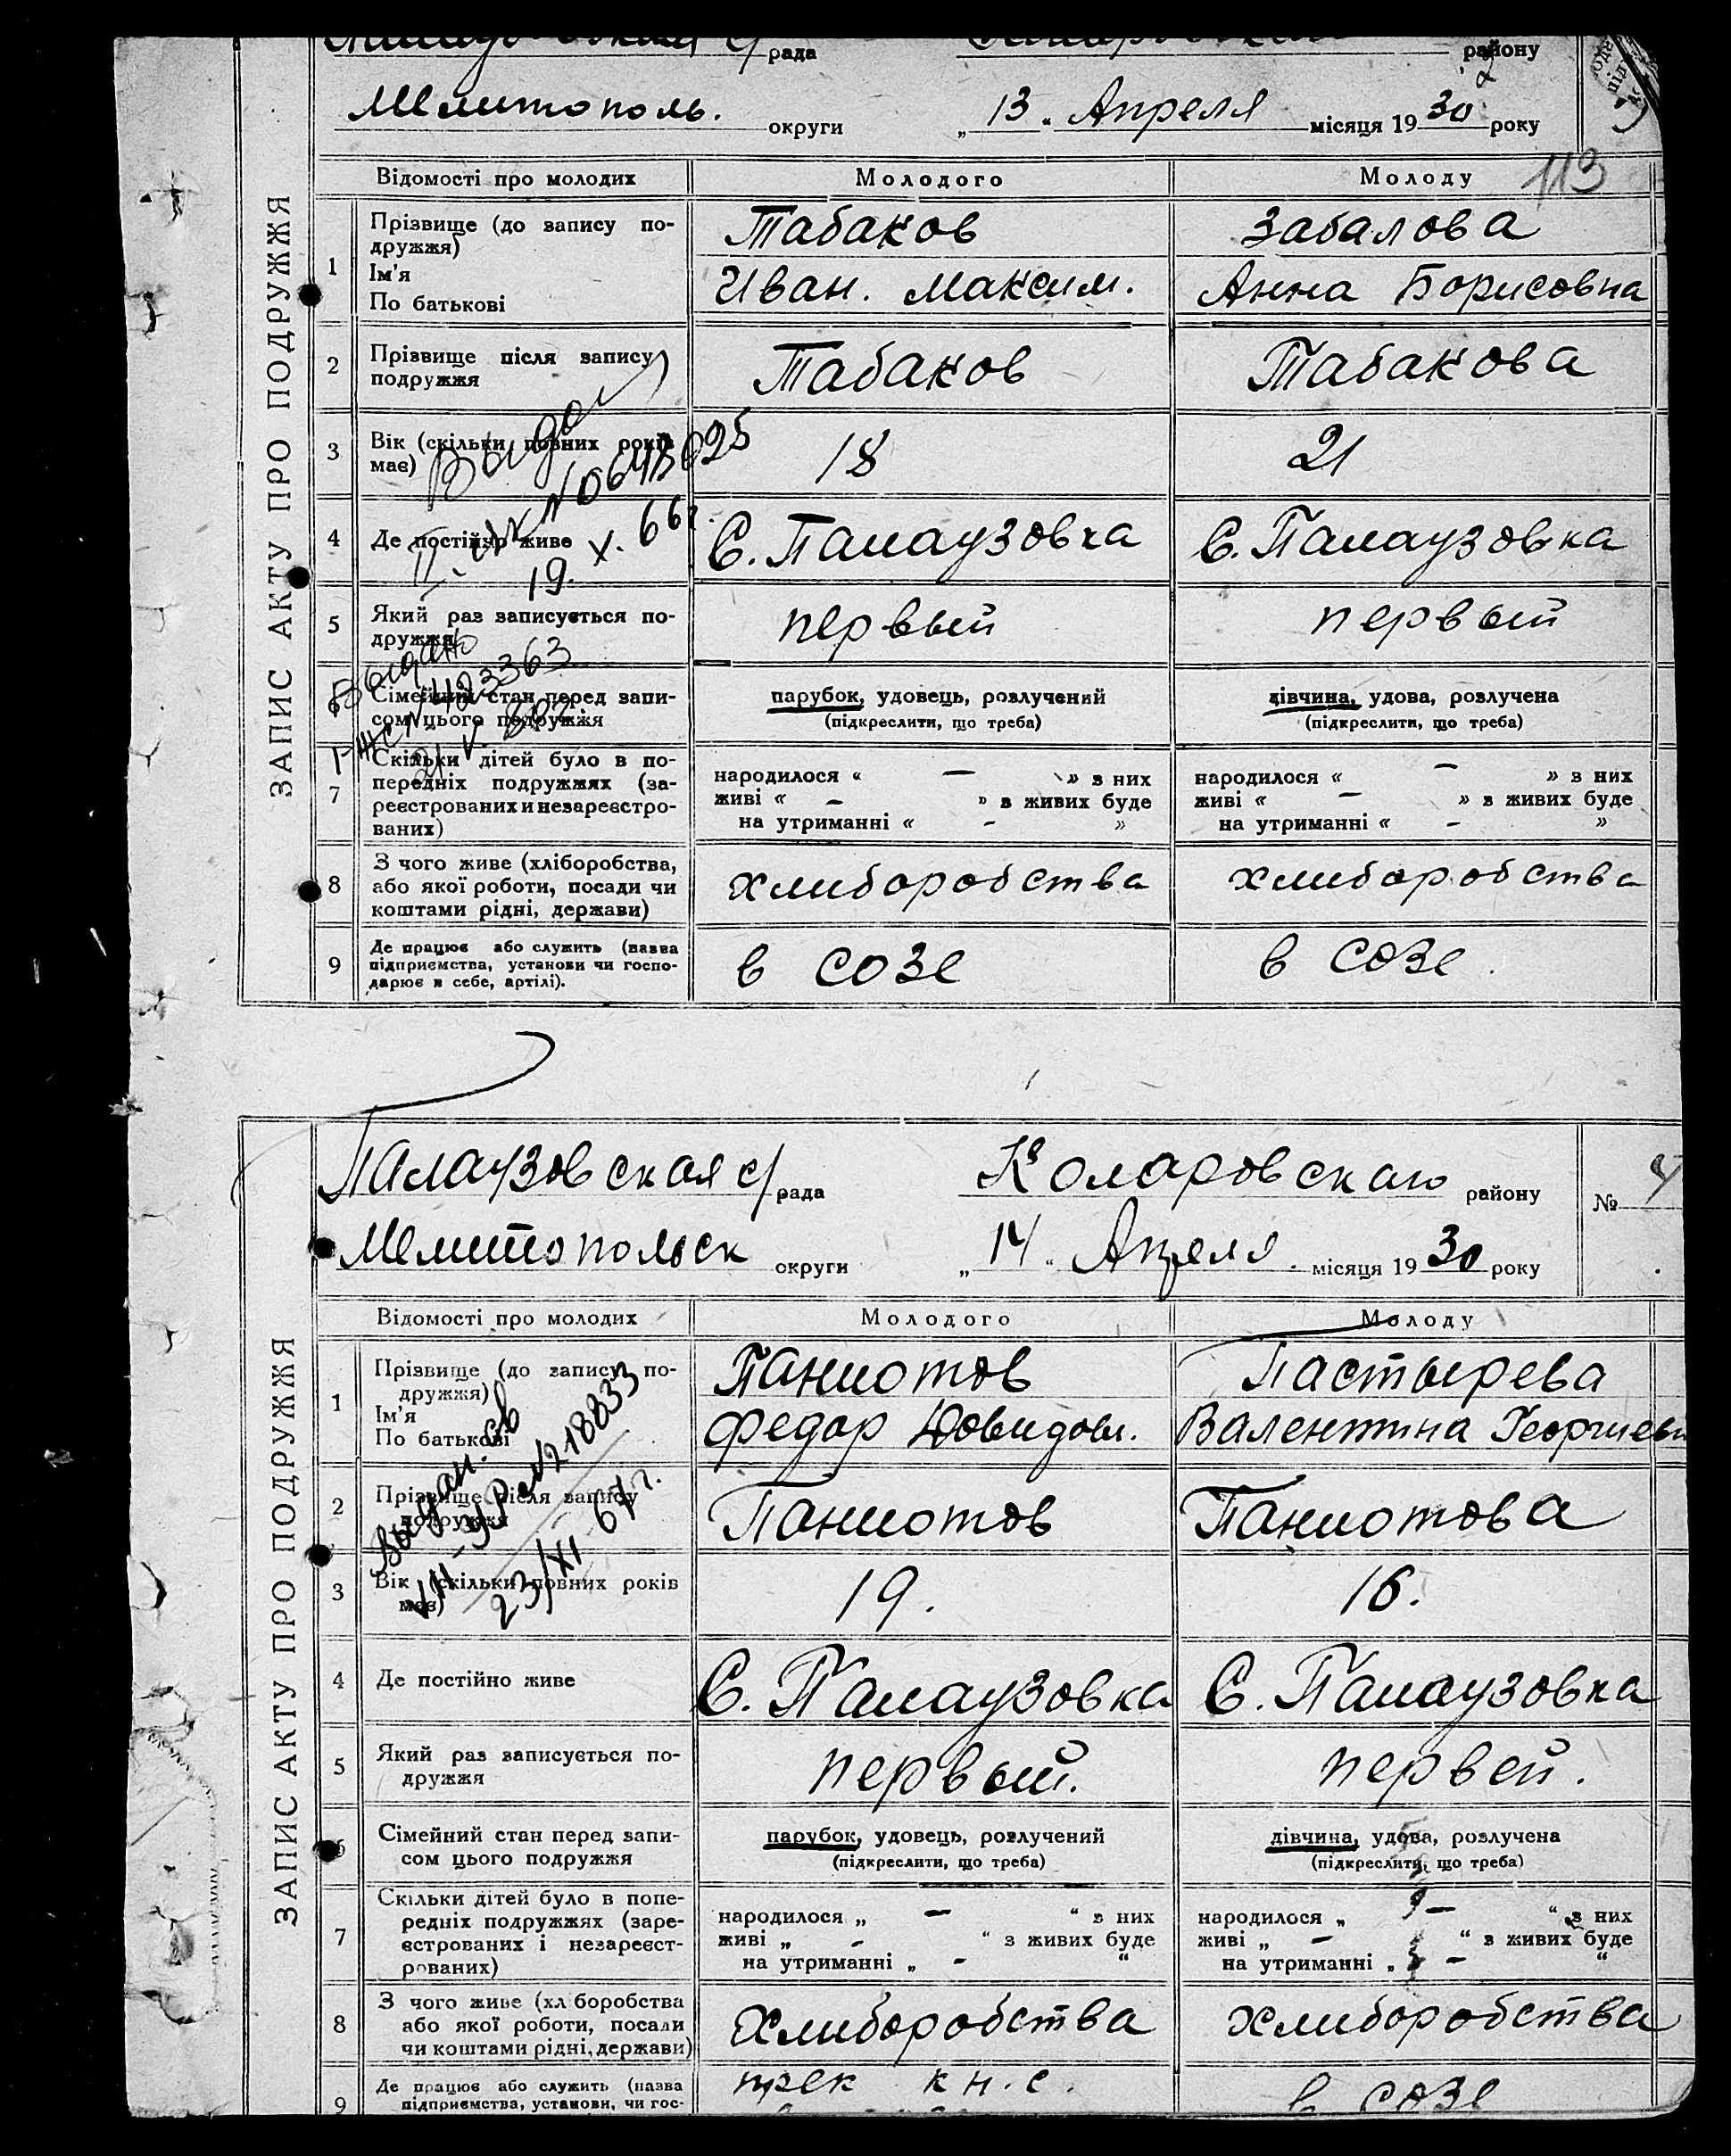 рада району
Мелитополь. округи „ 13 “ Апреля місяця 19 30 року
113
ЗАПИС АКТУ ПРО ПОДРУЖЖЯ
Відомості про молодих Молодого Молоду
1 Прізвище (до запису по-
дружжя)
Ім'я
По батькові
Табаков Забалова
Иван. Максим. Анна Борисовна
2 Прізвище після запису
подружжя
Табаков Табакова
3 Вік (скільки повних років
має)
18 21
4 Де постійно живе С. Палаузовка С. Палаузовка
19. X. 66г.
5 Який раз записується по-
дружжя
первый первый
Выдано
6 Сімейний стан перед запи-
сом цього подружжя
парубок, удовець, розлучений дівчина, удова, розлучена
(підкреслити, що треба) (підкреслити, що треба)
7 Скільки дітей було в по-
передніх подружжях (за-
реєстрованих и незареєстро-
ваних)
народилося « — » з них народилося « — » з них
живі « — » з живих буде живі « — » з живих буде
на утриманні « - » на утриманні « - »
8 З чого живе (хліборобства,
або якої роботи, посади чи
коштами рідні, держави)
хлиборобства хлиборобства
9 Де працює або служить (назва
підприємства, установи чи госпо-
дарює в себе, артілі).
в созе в созе.
Палаузовская с/рада Коларовскаго району № 4
Мелитопольск округи „ 14 “ Апреля. місяця 19 30 року
ЗАПИС АКТУ ПРО ПОДРУЖЖЯ
Відомості про молодих Молодого Молоду
1 Прізвище (до запису по-
дружжя)
Ім'я
По батькові
Паниотов Пастырева
Федор Довидови. Валентина Георгиевн
2 Прізвище після запису
подружжя
Паниотов Паниотова
3 Вік (скільки повних років
має)
19. 16.
23/XI-67г.
4 Де постійно живе С. Палаузовка С. Палаузовка
5 Який раз записується по-
дружжя
первый. первей.
6 Сімейний стан перед запи-
сом цього подружжя
парубок, удовець, розлучений дівчина, удова, розлучена
(підкреслити, що треба) (підкреслити, що треба)
7 Скільки дітей було в попе-
редніх подружжях (заре-
єстрованих і незареєст-
рованих)
народилося „ — “ з них народилося „ — “ з них
живі „ - “ з живих буде живі „ — “ з живих буде
на утриманні „ - “ на утриманні „ - “
8 З чого живе (хл боробства
або якої роботи, посади
чи коштами рідні, держави)
Хлиборобства Хлиборобства
9 Де працює або служить (назва
підприємства, установи, чи гос-
кн.с. в созе